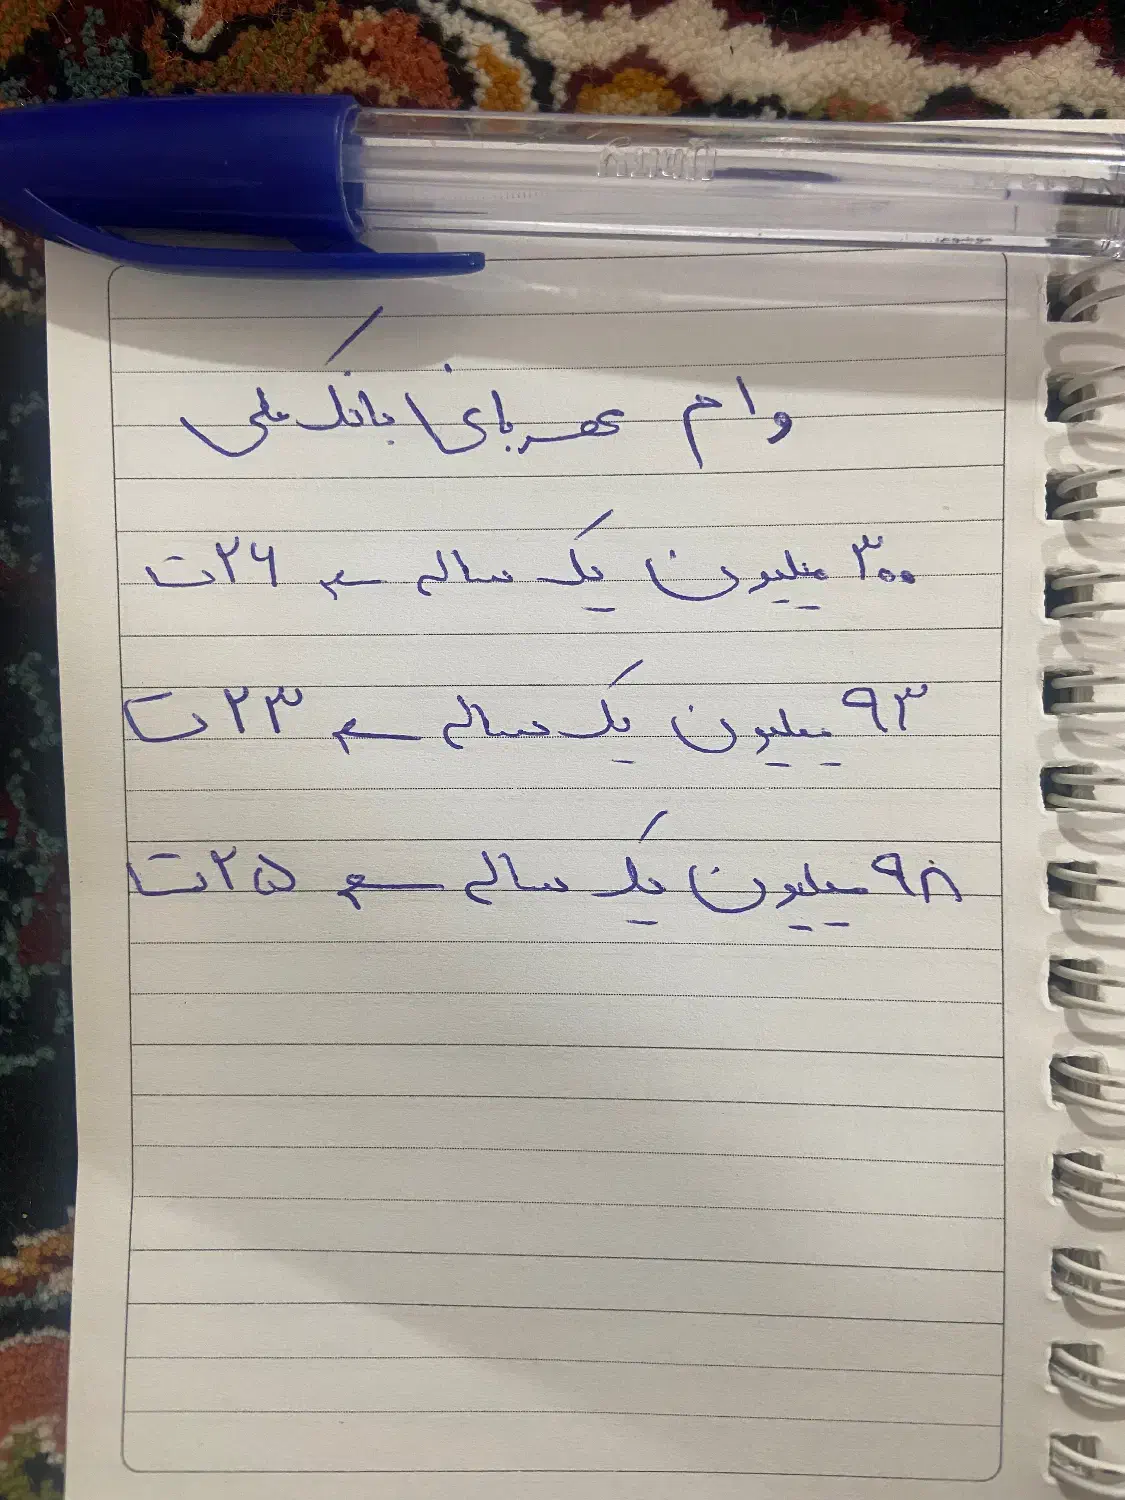 وام مهربانی بانک ملی
۳۰۰ میلیون یک ساله ← ۲۶ ت
۹۳ میلیون یک ساله ← ۲۳ ت
۹۸ میلیون یک ساله ← ۲۵ ت